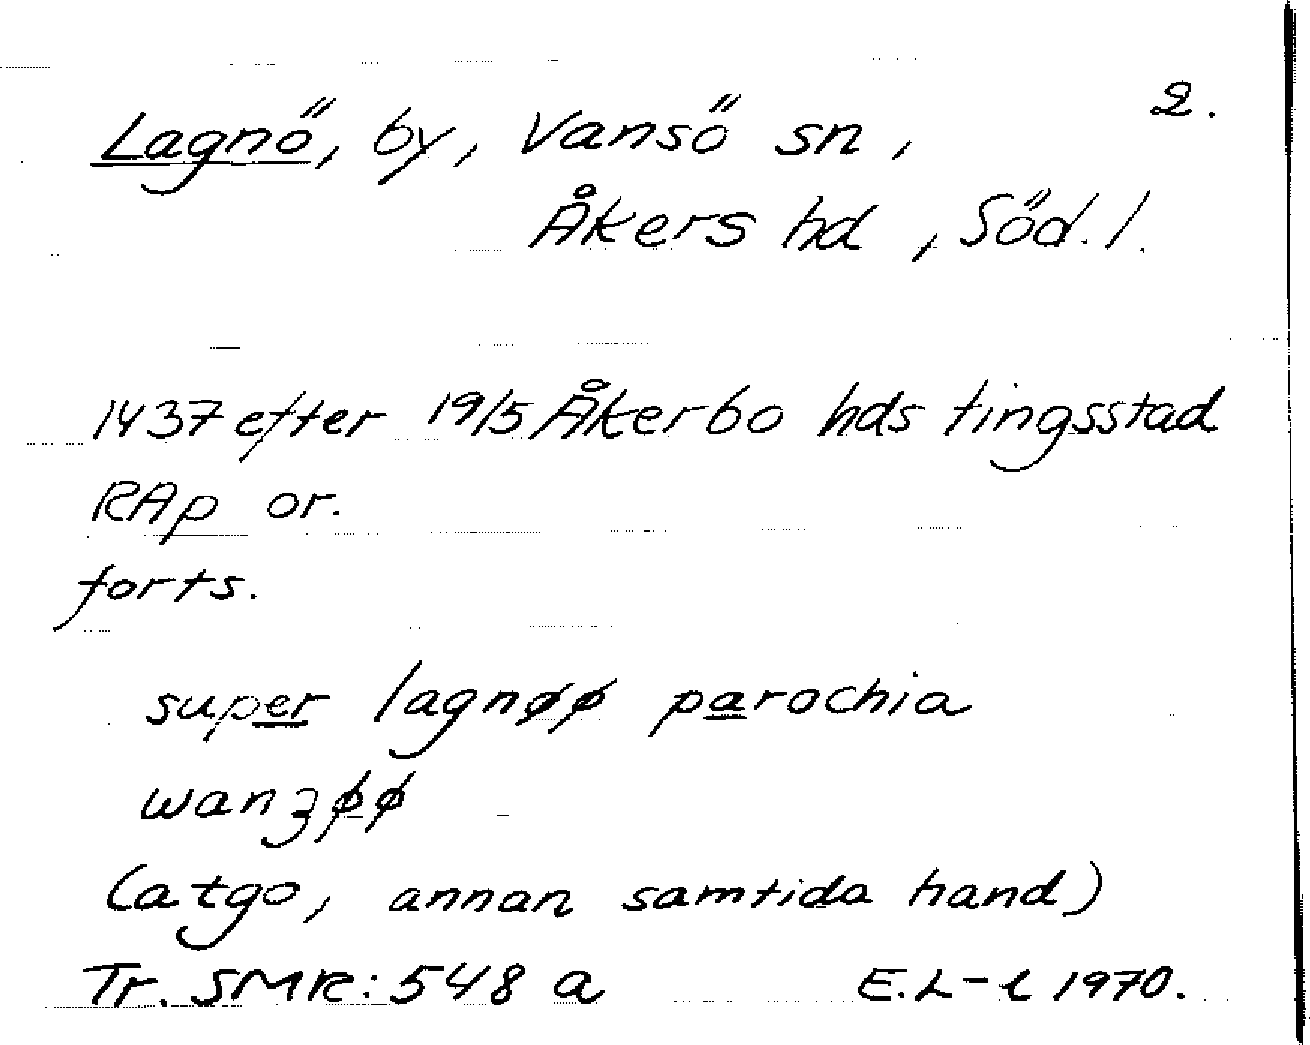 2.
Lagnö, by, Vansö sn,
Åkers hd, Söd.l.
1437 efter 19/5 Åkerbo hds tingsstad
RAp or.
forts.
super lagnøø parochia
wanʒøø
(atgo, annan samtida hand)
Tr. SMR: 548 a E.L-l 1970.